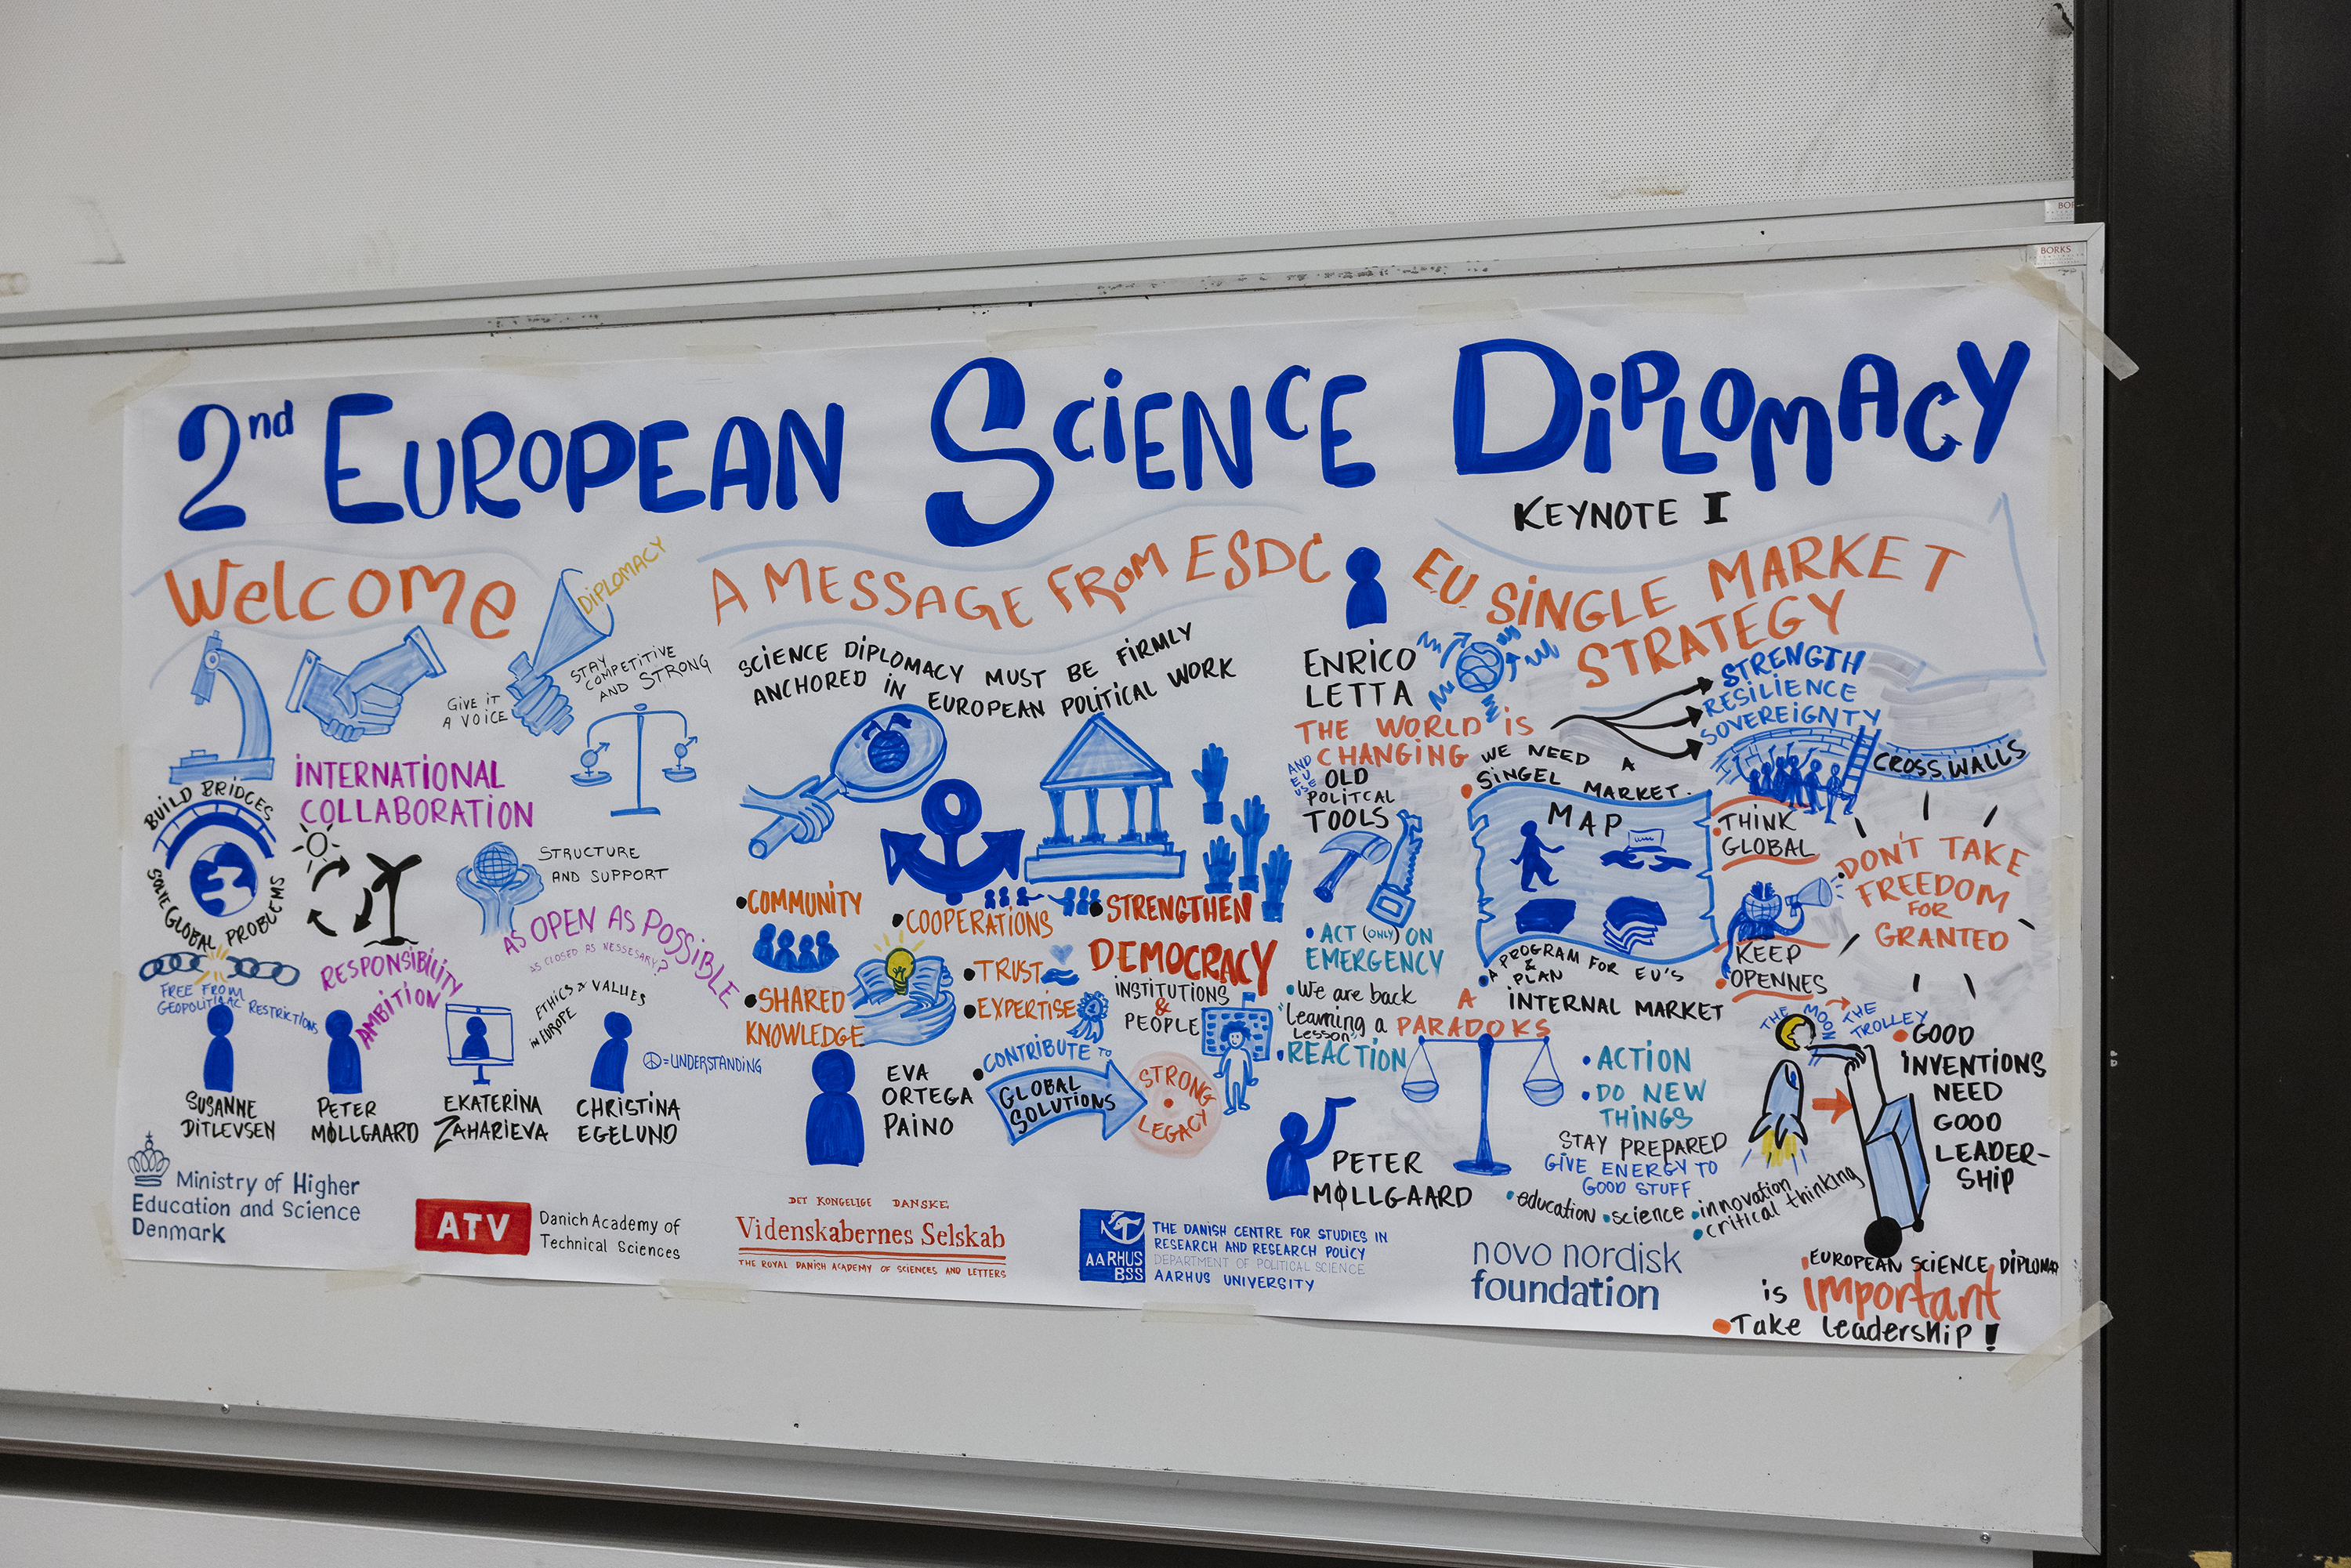 BORKS
2nd EUROPEAN SCIENCE DIPLOMACY
Welcome
DIPLOMACY
GIVE IT
A VOICE
STAY
COMPETITIVE
AND STRONG
INTERNATIONAL
COLLABORATION
BUILD BRIDGES
SOLVE GLOBAL PROBLEMS
STRUCTURE
AND SUPPORT
AS OPEN AS POSSIBLE
AS CLOSED AS NESSESARY?
RESPONSIBILITY
AMBITION
FREE FROM
GEOPOLITICAL RESTRICTIONS
ETHICS & VALUES
IN EUROPE
=UNDERSTANDING
SUSANNE
DITLEVSEN
PETER
MØLLGAARD
EKATERINA
ZAHARIEVA
CHRISTINA
EGELUND
A MESSAGE FROM ESDC
SCIENCE DIPLOMACY MUST BE FIRMLY
ANCHORED IN EUROPEAN POLITICAL WORK
•COMMUNITY
•COOPERATIONS
•STRENGTHEN
DEMOCRACY
INSTITUTIONS
&
PEOPLE
•SHARED
KNOWLEDGE
•TRUST
•EXPERTISE
EVA
ORTEGA
PAINO
•CONTRIBUTE TO
GLOBAL
SOLUTIONS
STRONG
LEGACY
KEYNOTE I
E.U. SINGLE MARKET
STRATEGY
ENRICO
LETTA
THE WORLD IS
CHANGING
AND
EU
USE
OLD
POLITCAL
TOOLS
STRENGTH
RESILIENCE
SOVEREIGNTY
•WE NEED A
SINGEL MARKET.
CROSS WALLS
MAP
•THINK
GLOBAL
•DON'T TAKE
FREEDOM
FOR
GRANTED
•KEEP
OPENNES
•A PROGRAM FOR EU'S
& PLAN
INTERNAL MARKET
•ACT (ONLY) ON
EMERGENCY
•We are back
"Learning a
Lesson"
•REACTION
A
PARADOKS
•ACTION
•DO NEW
THINGS
STAY PREPARED
GIVE ENERGY TO
GOOD STUFF
•education •science •innovation
•critical thinking
PETER
MØLLGAARD
THE MOON
THE
TROLLEY
•GOOD
INVENTIONS
NEED
GOOD
LEADER-
SHIP
EUROPEAN SCIENCE DIPLOMA
is important
•Take leadership!
Ministry of Higher
Education and Science
Denmark
ATV
Danich Academy of
Technical Sciences
DET KONGELIGE DANSKE
Videnskabernes Selskab
THE ROYAL DANISH ACADEMY OF SCIENCES AND LETTERS
AARHUS
BSS
THE DANISH CENTRE FOR STUDIES IN
RESEARCH AND RESEARCH POLICY
DEPARTMENT OF POLITICAL SCIENCE
AARHUS UNIVERSITY
novo nordisk
foundation